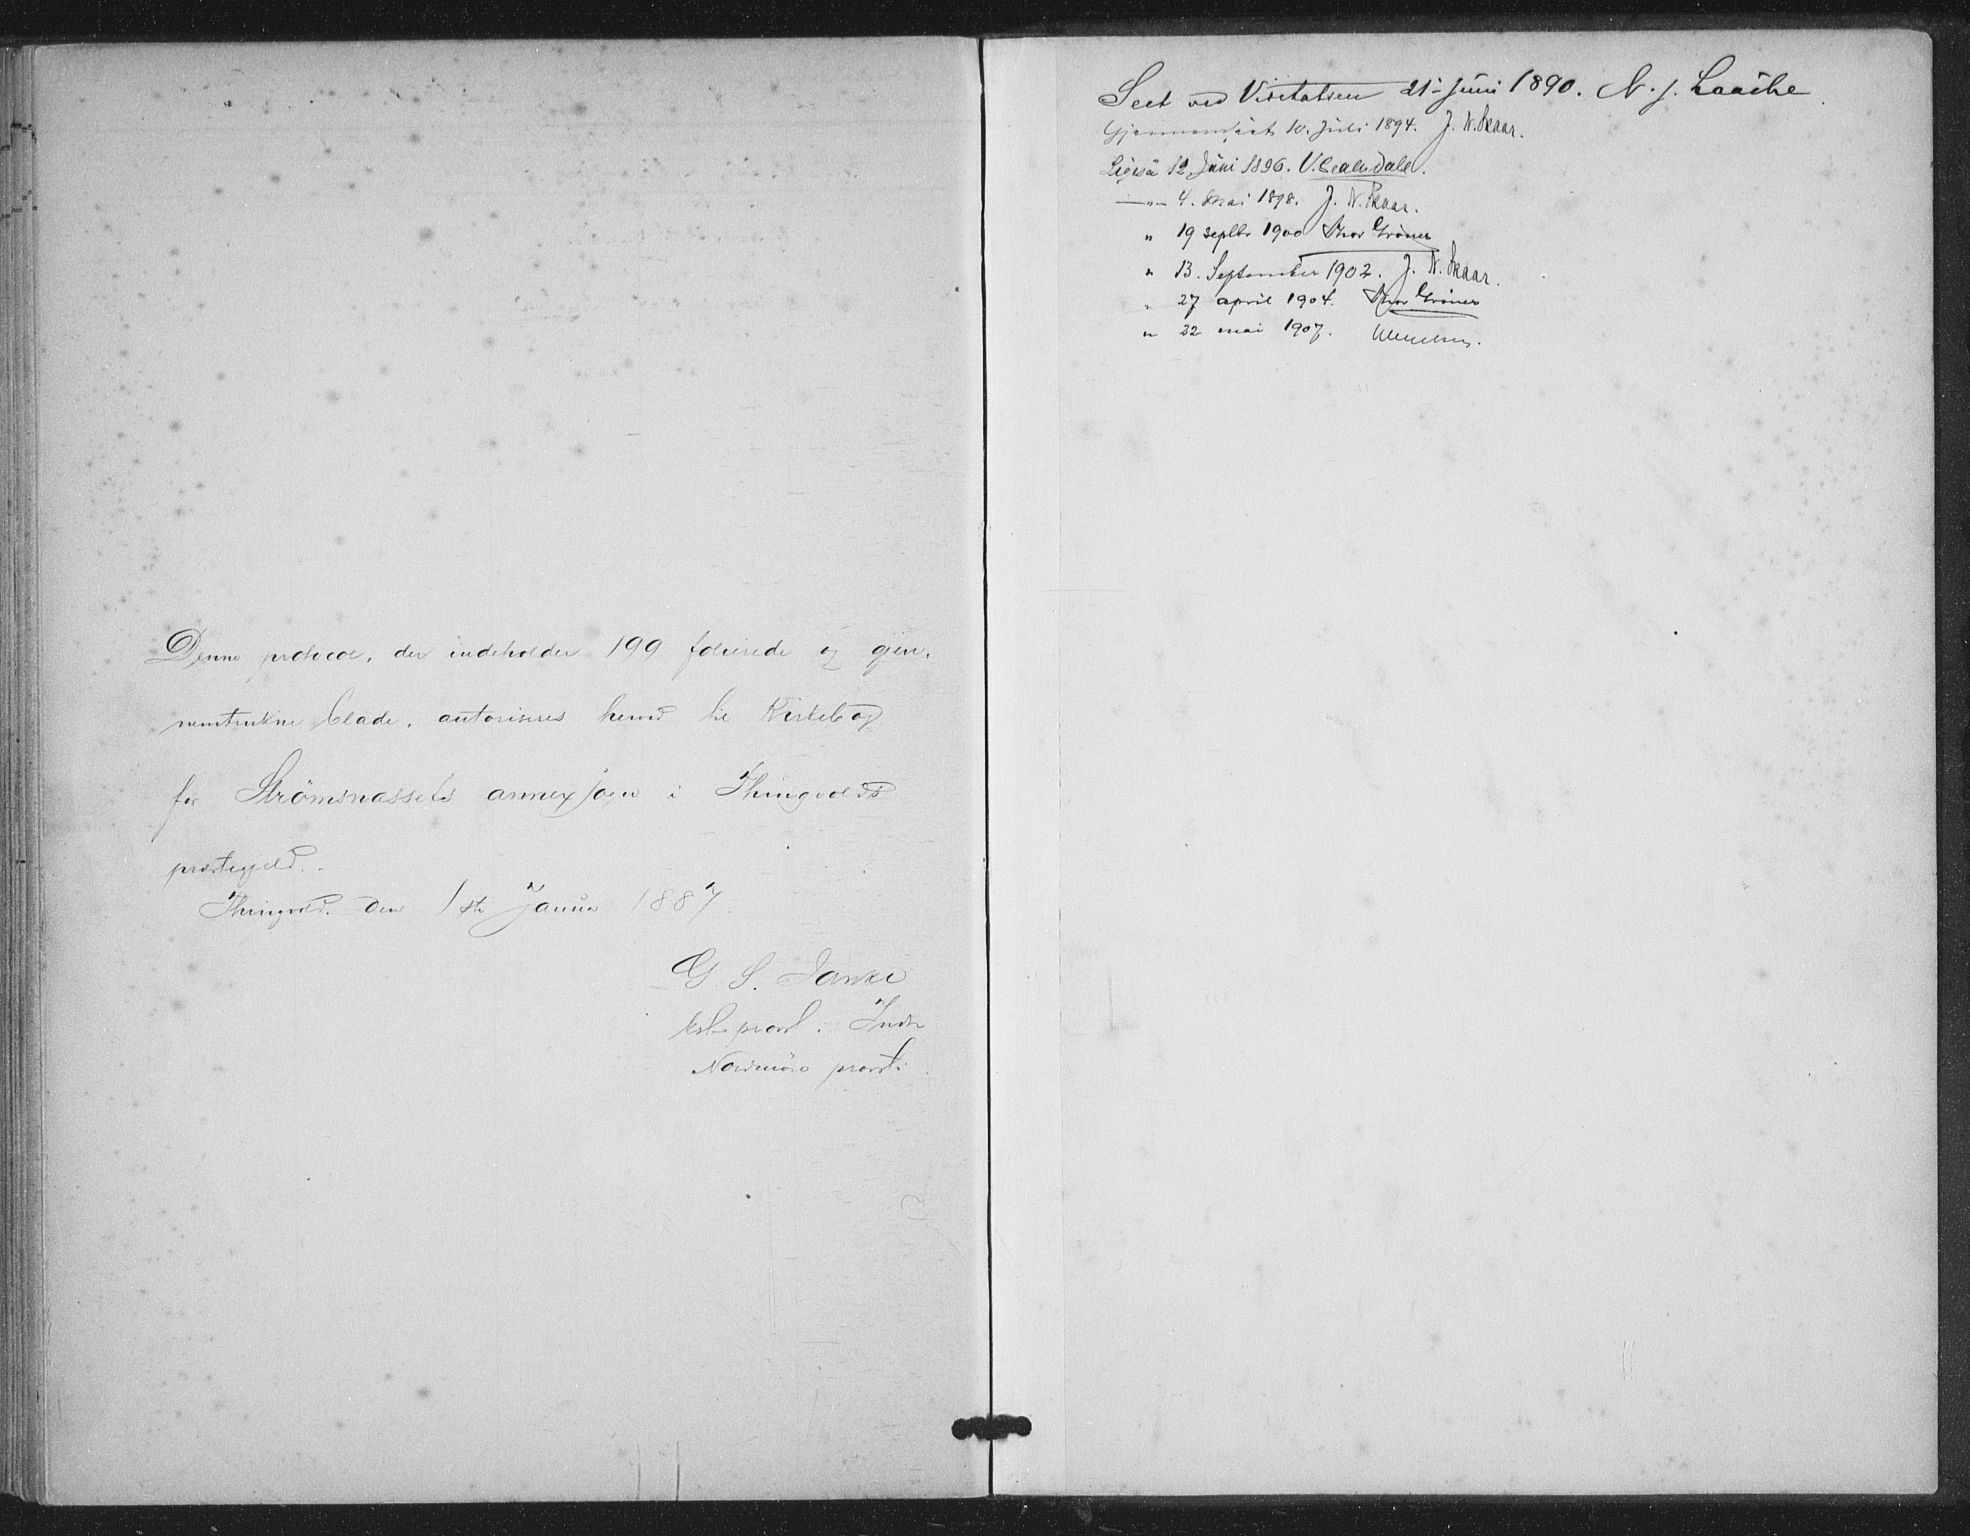 Denne protocol, der indeholder 199 folierede og gjen-
nemtrukne blade, autoriseres herved til Kirkebog
for Strömsnæssets annexsogn i Thingvolds
præstegjeld.
Thingvold den 1ste Januar 1887
G. S. Janke
kst. provst i Indre
Nordmöre provsti
Seet ved Visitatsen 21 Juni 1890. N. J. Laache
Gjennemseet 10. Juli 1894. J. N. Skaar.
Ligesaa 12 Juni 1896.
—"— 4. Mai 1898. J. N. Skaar.
" 19 septbr 1900 Thor Gröner
" 13. September 1902. J. N. Skaar.
" 27 april 1904. Thor Gröner
" 22 mai 1907.